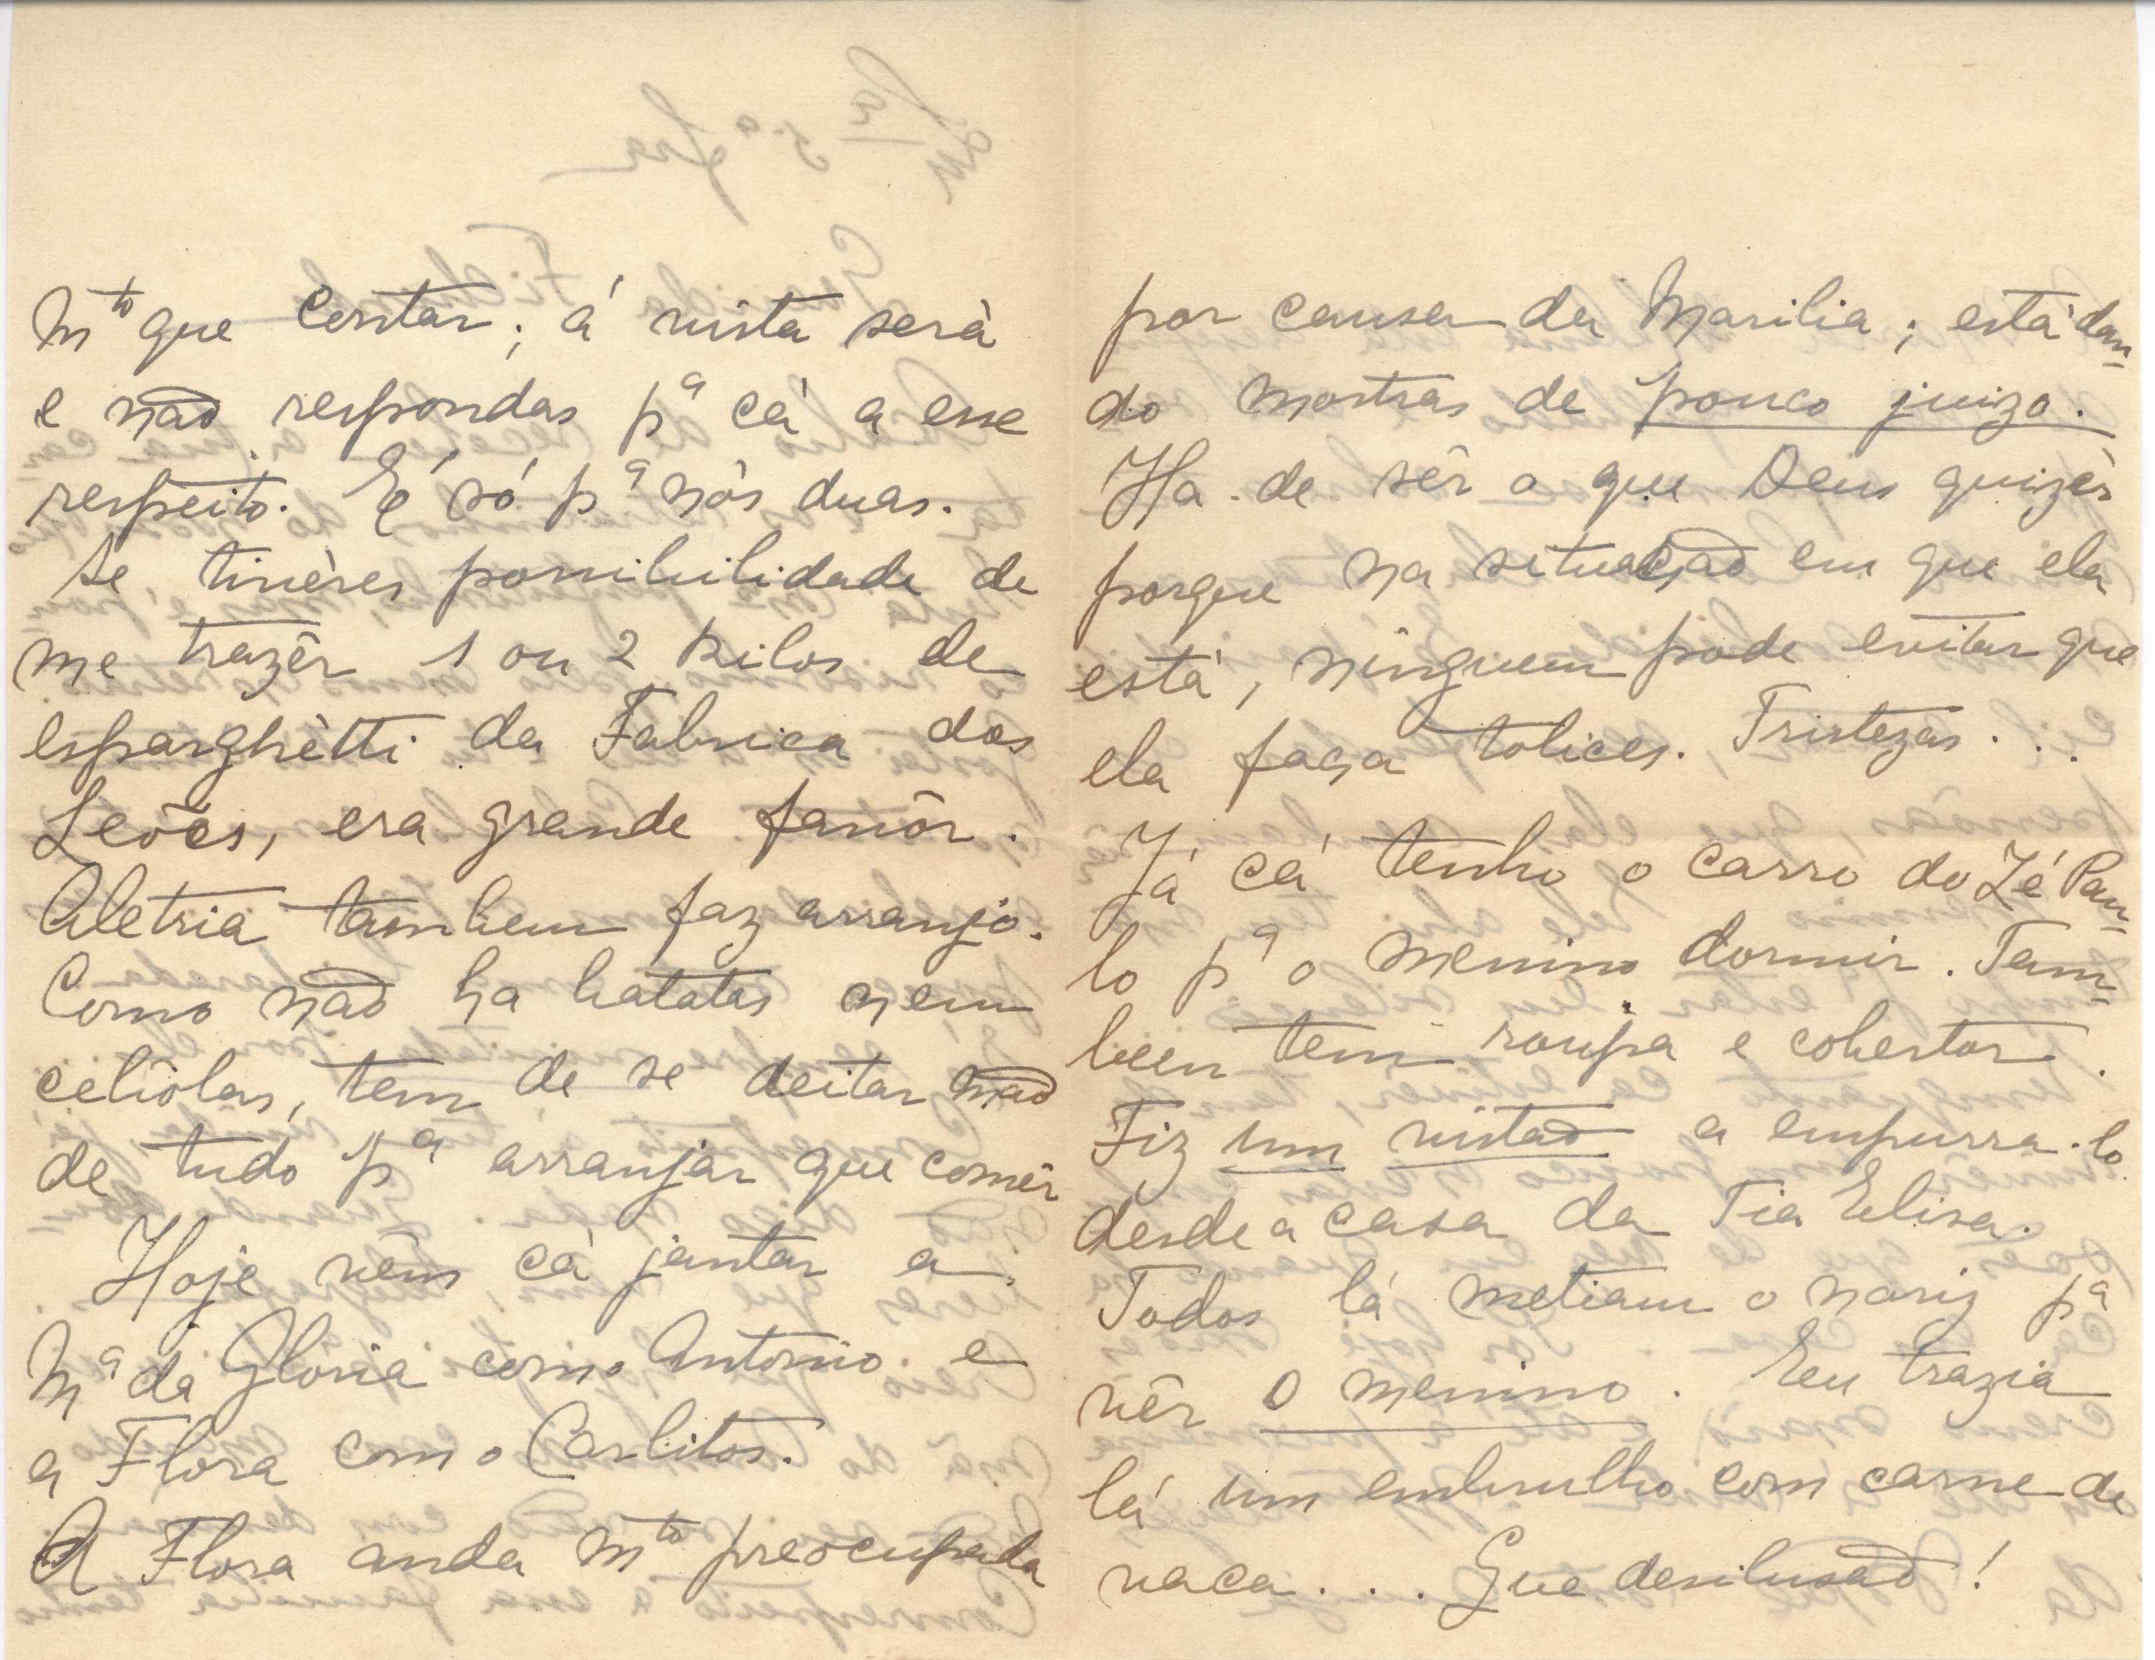 Mto que contar; á vista será
e não respondas pª cá a esse
respeito. É só pª nós duas.
Se tivéres possibilidade de
me trazêr 1 ou 2 kilos de
esparghètti da Fabrica dos
Leões, era grande favôr.
Aletria tambem faz arranjo.
Como não ha batatas nem
cebôlas, tem de se deitar mão
de tudo pª arranjar que comêr
Hoje vêm cá jantar a
Mª da Gloria com o Antonio e
a Flora com o Carlitos.
A Flora anda mto preocupada
por causa da Marilia; está dan-
do mostras de pouco juizo.
Ha-de sêr o que Deus quizér
porque na situação em que ela
está, ninguem pode evitar que
ela faça tolices. Tristezas...
Já cá tenho o carro do Zé Pau-
lo pª o menino dormir. Tam-
bem tem roupa e cobertor.
Fiz um vistão a empurra-lo
desde a casa da Tia Elisa.
Todos lá metiam o nariz pª
vêr o menino. Eu trazia
lá um embrulho com carne de
vaca... Que desilusão!